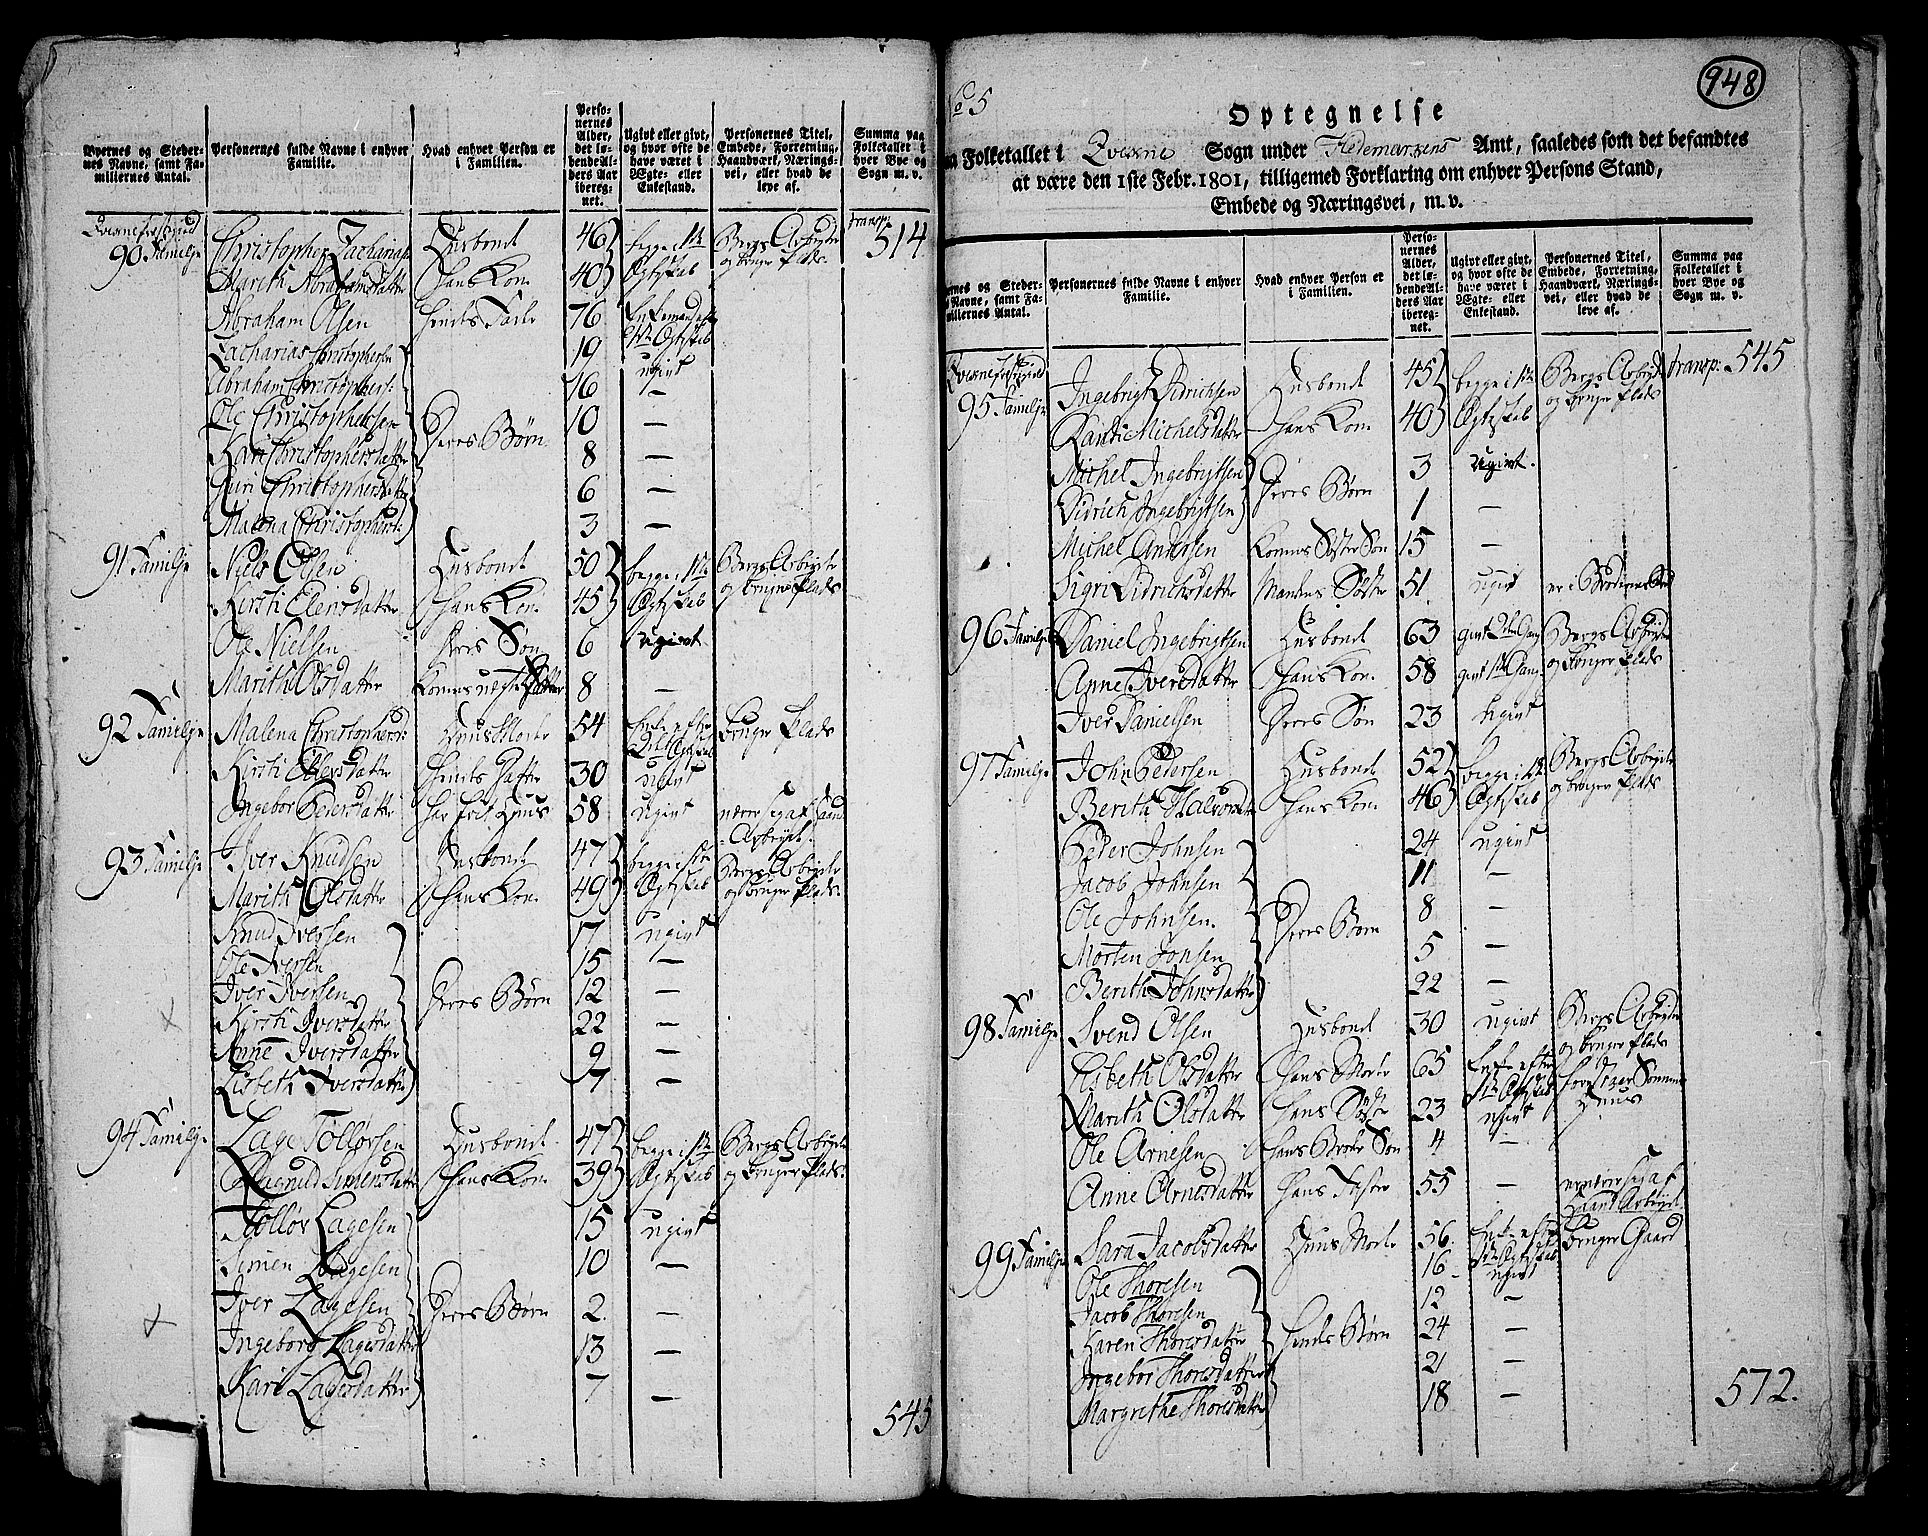 Byernes og Steder-
nes Navne, samt Fa-
milliernes Antal.
Personernes fulde Navne i enhver
Familie.
Hvad enhver Person er
i Familien.
Perso-
nernes
Alder,
det lø-
bende Al-
ders Aar
ibereg-
net.
Ugivt eller givt,
og hvor ofte de
have været i
Ægte- eller
Enkestand.
Personernes Titel,
Embede, Forretning,
Haandværk, Nærings-
vei, eller hvad de
leve af.
Summa paa
Folketallet i
hver Bye og
Sogn m. v.
Qvicnefrestgield
transp:
90 Familje Christopher Zachariass: Husbond 46 begge i 1te Bergs Arbeyder 514
Marith Abrahamsdatter Hans Kone 40 Ægteskab og bruger Plads.
Abraham Olsen Hendes Fader 76 Enkemand efter
1te Ægteskab
Zacharias Christophersen 19 ugivt
Abraham Christophers: 16 —
Ole Christophersen 10 —
Kari Christophersdatter Deres Børn 8 —
Guri Christophersdatter 6 —
Malena Christophersd: 3 —
91 Familje Niels Olsen Husbond 50 begge i 1te Bergs Arbeyder
Kirsti Ellensdatter Hans Kone 45 Ægteskab og bruger Plads
Ole Nielsen Deres Søn 6 ugivt
Marith Olsdatter Konens uægte Datter 8 —
92 Familje Malena Christophersd: Huus Moder 54 Enke efter bruger Plads
Ægteskab
Kirsti Ellersdatter Hendes Datter 30 ugivt
Ingebor Pedersdatter har frit Huus 58 ugivt nærer sig af Haand
Arbeyde.
93 Familje Iver Knudsen Husbond 47 begge i 1te Bergs Arbeyder
Marith Olsdatter Hans Kone 49 Ægteskab og bruger Plads.
Knud Iversen 17 ugivt
Ole Iversen 15 —
Iver Iversen Deres Børn 12 —
Kirsti Iversdatter 22 —
Anne Iversdatter 9 —
Lisbeth Iversdatter 7 —
94 Familje Lage Tolløvsen Husbond 47 begge i 1te Bergs Arbeyder
Ragnild Simensdatter Hans Kone 39 Ægteskab og bruger Plads.
Tolløv Lagesen 15 ugivt
Simen Lagesen 10 —
Iver Lagesen Deres Børn 2 —
Ingeborg Lagesdatter 13 —
Kari Lagesdatter 7 —
545
948
No 5
Optegnelse
Folketallet i Qvicne Sogn under Hedemarkens Amt, saaledes som det befandtes
at være den 1ste Febr. 1801, tilligemed Forklaring om enhver Persons Stand,
Embede og Næringsvei, m. v.
nes og Steder-
Navne, samt Fa-
milliernes Antal.
Personernes fulde Navne i enhver
Familie.
Hvad enhver Person er
i Familien.
Perso-
nernes
Alder,
det lø-
bende Al-
ders Aar
ibereg-
net.
Ugivt eller givt,
og hvor ofte de
have været i
Ægte- eller
Enkestand.
Personernes Titel,
Embede, Forretning,
Haandværk, Nærings-
vei, eller hvad de
leve af.
Summa paa
Folketallet i
hver Bye og
Sogn m. v.
Qvicnefrestgield
95 Familje Ingebrigt Didrichsen Husbond 45 begge i 1te Bergs Arbeyder transp: 545
Randi Michelsdatter Hans Kone 40 Ægteskab og bruger Plads
Michel Ingebrigtsen 3 ugivt.
Didrich Ingebrigtsen Deres Børn 1 —
Michel Andersen Konens Søster Søn 15 —
Sigri Didrichsdatter Mandens Søster 51. ugivt
96 Familje Daniel Ingebrigtsen Husbond 63 givt 2den Gang Bergs Arbeyder
Anne Iversdatter Hans Kone 58 givt 1te Gang. og bruger Plads
Iver Danielsen Deres Søn 23 ugivt
97 Familje John Pedersen Husbond 52 begge i 1te Bergs Arbeyder
Berith Halvorsdatter Hans Kone 46 Ægteskab og bruger Plads
Peder Johnsen 24 ugivt
Jacob Johnsen 11 —
Ole Johnsen. Deres Børn 8 —
Morten Jonsen 5 —
Berith Johnsdatter 22 —
98 Familje Svend Olsen Husbond 30 ugivt Bergs Arbeyder
og bruger Plads
Lisbeth Olsdatter Hans Moder 65 Enke efter
1te Ægteskab
Marith Olsdatter Hans Søster 23 ugivt
Ole Arnesen Hans Broder Søn 4 —
Anne Arnesdatter Hans Faster 55 — ernærer sig af
Haand Arbeyde.
99 Familje Sara Jacobsdatter Huus Moder 56. Enke efter bruger Gaard
1te Ægteskab
Ole Thoresen 16 ugivt
Jacob Thoresen 12 —
Karen Thoresdatter Hendes Børn 24 —
Ingebor Thoresdatter 21 —
Margrethe Thoresdatter 18 —
572.